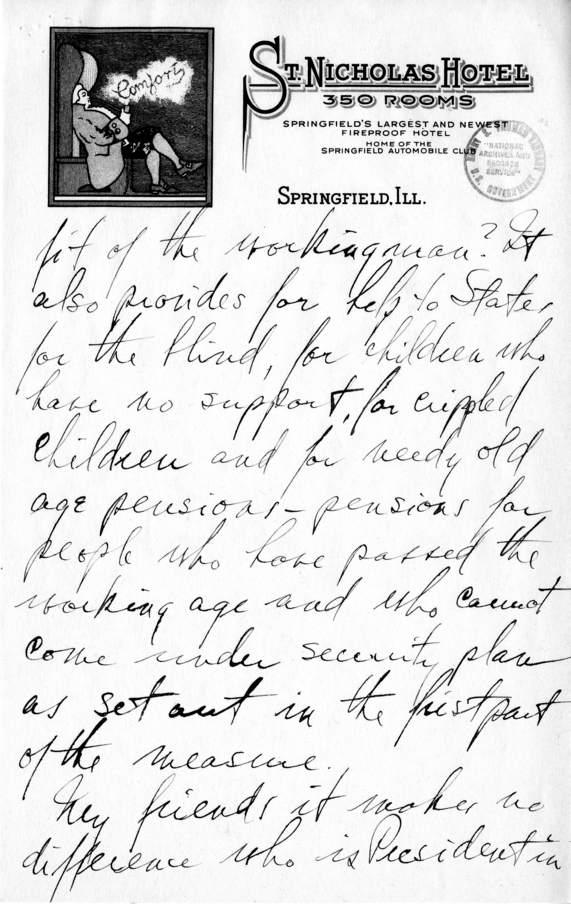 Comfort
ST. NICHOLAS HOTEL
350 ROOMS
SPRINGFIELD'S LARGEST AND NEWEST
FIREPROOF HOTEL
HOME OF THE
SPRINGFIELD AUTOMOBILE CLUB
HARRY S. TRUMAN LIBRARY
"NATIONAL
ARCHIVES AND
RECORDS
SERVICE"
U.S. GOVERNMENT
SPRINGFIELD, ILL.
fit of the workingman? It
also provides for help to States
for the blind, for children who
have no support, for crippled
children and for needy old
age pensions - pensions for
people who have passed the
working age and who cannot
come under security plan
as set out in the first part
of the measure.
My friends it makes no
difference who is President in